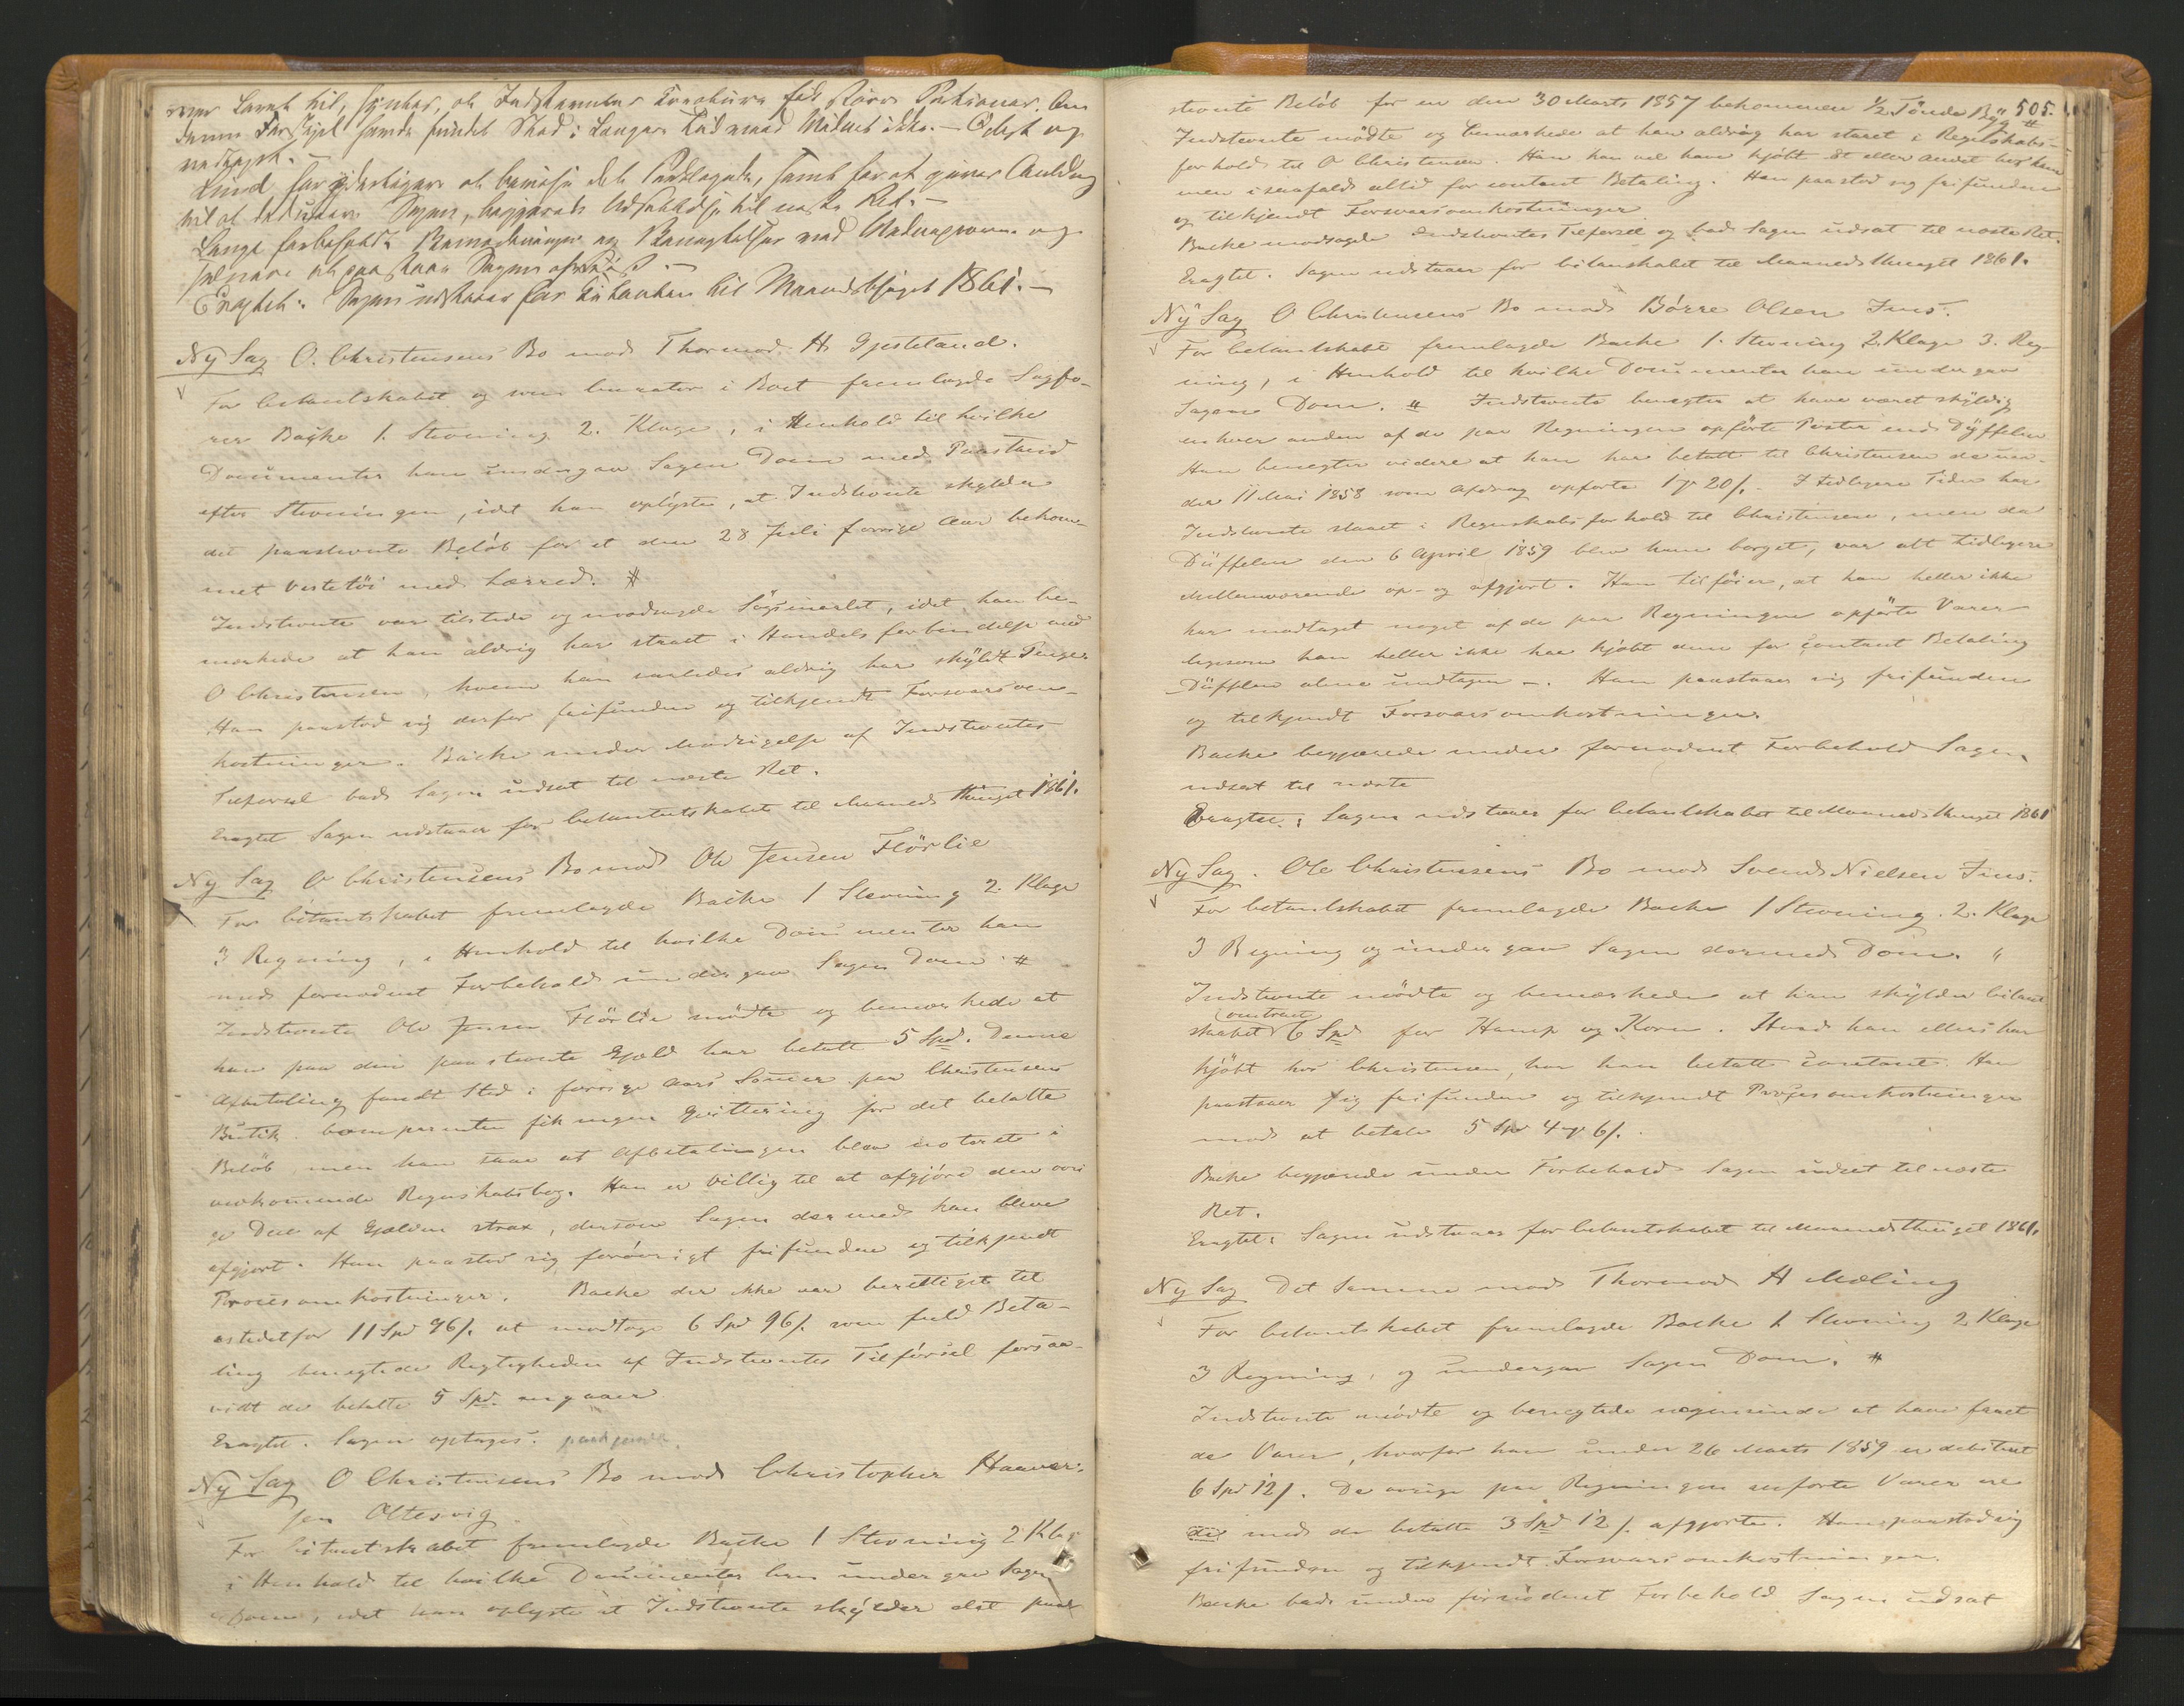 denne
Lind for yderligere at bevise det
til at Sagen, begjærede Udsættelse til næste Ret. —
Lange forbeholdt Bemærkninger og Benægtelser mod
Sagen
Eragtet: Sagen udstaaer for til Maanedsthinget 1861. —
Ny Sag O. Christensens Bo mod Thormod H Gjesteland.
For Citantskabet og som Curator i Boet fremlagde Sagfø-
rer Backe 1. Stevning 2. Klage, i Henhold til hvilke
Documenter han undergav Sagen Dom med Paastand
efter Stevningen, idet han oplyste, at Indstevnte skylder
det paastevnte Beløb for et den 28 Juli forrige Aar bekom-
met Vestetøi med Lærred. #
Indstevnte var tilstede og modsagde Søgsmaalet, idet han be-
mærkede at han aldrig har staaet i Handelsforbindelse med
O Christensen, hvem han saaledes aldrig har skyldt Penge.
Han paastod sig derfor frifunden og tilkjendt Forsvarsom-
kostninger. Backe under Modsigelse af Indstevntes
Tilførsel bad Sagen udsat til næste Ret.
Eragtet Sagen udstaaer for Citantskabet til Maanedsthinget 1861.
Ny Sag O Christensens Bo mod Ole Jensen Flörlie
For Citantskabet fremlagde Backe 1 Stevning 2. Klage
3 Regning, i Henhold til hvilke Documenter han
med fornødent Forbehold undergav Sagen Dom. #
Indstevnte Ole Jensen Flörlie mødte og bemærkede at
han paa den paastevnte Gjæld har betalt 5 Spd. Denne
Afbetaling fandt Sted i forrige Aars Sommer paa Christensens
Butik. Comparenten fik ingen Qvittering for det betalte
Beløb, men han saae at Afbetalingen blev noteret i
vedkommende Regnskabsbog. Han er villig til at afgjøre den øvri-
ge Deel af Gjælden strax, dersom Sagen dermed kan blive
afgjort. Han paastod sig forøvrigt frifunden og tilkjendt
Procesomkostninger. Backe der ikke var berettiget til
istedetfor 11 Spd 96 /. at modtage 6 Spd 96 /. som fuld Beta-
ling benegtede Rigtigheden af Indstevntes Tilførsel forsaa-
vidt de betalte 5 Spd. angaaer
Eragtet. Sagen optages.
Ny Sag O Christensens Bo mod Christopher Haaver-
sen Oltesvig.
For Citantskabet fremlagde Backe 1 Stevning 2 Klage
i Henhold til hvilke Documenter han undergav Sagen
Dom, idet han oplyste at Indstevnte skylder det paa-
505.
stevnte Beløb for en den 30 Marts 1857 bekommen ½ Tønde Byg #
Indstevnte mødte og bemærkede at han aldrig har staaet i Regnskabs-
forhold til O Christensen. Han kan vel have kjøbt Et eller andet hos ham
men isaafald altid for contant Betaling. Han paastod sig frifunden
og tilkjendt Forsvarsomkostninger
Backe modsagde Indstevntes Tilførsel og bad Sagen udsat til næste Ret.
Eragtet. Sagen udstaaer for Citantskabet til Maanedsthinget 1861.
Ny Sag O Christensens Bo mod Börre Olsen Fuus.
For Citantskabet fremlagde Backe 1. Stevning 2. Klage 3. Reg-
ning, i Henhold til hvilke Documenter han undergav
Sagen Dom. # Indstevnte benegter at have været skyldig
enhver anden af de paa Regningen opførte Poster end Dyffelen
Han benegter videre at han har betalt til Christensen de un-
der 11 Mai 1858 som Afdrag opførte 1 20/. I tidligere Tider har
Indstevnte staaet i Regnskabsforhold til Christensen, men da
Düffelen den 6 April 1859 blev ham borget, var alt tidligere
Mellemværende op- og afgjort. Han tilføier, at han heller ikke
har modtaget noget af de paa Regningen opførte Varer
ligesom han heller ikke har kjøbt dem for contant Betaling
Düffelen alene undtagen —. Han paastaaer sig frifunden
og tilkjendt Forsvarsomkostninger.
Backe begjærede under fornødent Forbehold Sagen
udsat til næste
Eragtet: Sagen udstaaer for Citantskabet til Maanedsthinget 1861
Ny Sag. Ole Christensens Bo mod Svend Nielsen Fuus.
For Citantskabet fremlagde Backe 1 Stevning. 2. Klage
3 Regning og undergav Sagen dermed Dom. "
Indstevnte mødte og bemærkede at han skylder Citant-
skabet 6 Spd for Hamp og Korn. Hvad han ellers har
kjøbt hos Christensen, har han betalt contant. Han
paastaaer sig frifunden og tilkjendt Procesomkostninger
mod at betale 5 Spd 4 6/.
Backe begjærede under Forbehold Sagen udsat til næste
Ret.
Eragtet: Sagen udstaaer for Citantskabet til Maanedsthinget 1861.
Ny Sag Det Samme mod Thormod H Mæling
For Citantskabet fremlagde Backe 1. Stevning 2 Klage
3 Regning, og undergav Sagen Dom. #
Indstevnte mødte og benegtede at have faaet
de Varer, hvorfor han under 26 Marts 1859 er debiteret
6 Spd 12 /. De øvrige paa Regningen anførte Varer ere
med de betalte 3 Spd 12 /. afgjorte. Han paastod sig
frifunden og tilkjendt Forsvarsomkostninger.
Backe bad under fornødent Forbehold Sagen udsat